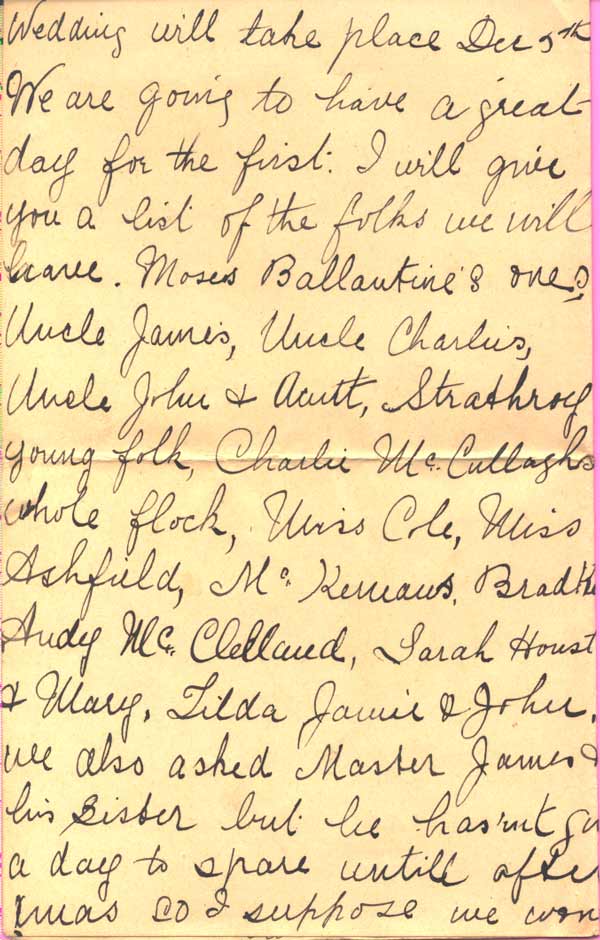 Wedding will take place Dec 5th
We are going to have a great
day for the first. I will give
you a list of the folks we will
have. Moses Ballantine's ones,
Uncle James, Uncle Charlies,
Uncle John & Aunt, Strathroy
young folk, Charlie Mc. Cullaghs
whole flock, Miss Cole, Miss
Ashfield, Mc. Kernans,
Andy Mc. Clelland, Sarah Houst
& Mary, Tilda Jamie & John.
we also asked Master James &
his sister but he hasn't
a day to spare untill after
Xmas so I suppose we